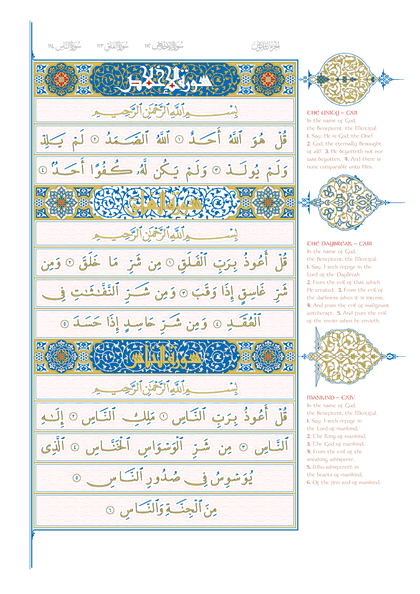 سورة الاخلاص ١١٢
سورة الفلق ١١٣
سورة الناس ١١٤
بِسْمِ اللَّهِ الرَّحْمَٰنِ الرَّحِيمِ
قُلْ هُوَ اللَّهُ أَحَدٌ ١ اللَّهُ الصَّمَدُ ٢ لَمْ يَلِدْ
وَلَمْ يُولَدْ ٣ وَلَمْ يَكُن لَّهُ كُفُوًا أَحَدٌ ٤
بِسْمِ اللَّهِ الرَّحْمَٰنِ الرَّحِيمِ
قُلْ أَعُوذُ بِرَبِّ الْفَلَقِ ١ مِن شَرِّ مَا خَلَقَ ٢ وَمِن
شَرِّ غَاسِقٍ إِذَا وَقَبَ ٣ وَمِن شَرِّ النَّفَّاثَاتِ فِي
الْعُقَدِ ٤ وَمِن شَرِّ حَاسِدٍ إِذَا حَسَدَ ٥
بِسْمِ اللَّهِ الرَّحْمَٰنِ الرَّحِيمِ
قُلْ أَعُوذُ بِرَبِّ النَّاسِ ١ مَلِكِ النَّاسِ ٢ إِلَٰهِ
النَّاسِ ٣ مِن شَرِّ الْوَسْوَاسِ الْخَنَّاسِ ٤ الَّذِي
يُوَسْوِسُ فِي صُدُورِ النَّاسِ ٥
مِنَ الْجِنَّةِ وَالنَّاسِ ٦
THE UNITY – CXII
In the name of God,
the Beneficent, the Merciful.
1. Say: He is God, the One!
2. God, the eternally Besought
of all! 3. He begetteth not nor
was begotten. 4. And there is
none comparable unto Him.
THE DAYBREAK – CXIII
In the name of God,
the Beneficent, the Merciful.
1. Say: I seek refuge in the
Lord of the Daybreak
2. From the evil of that which
He created. 3. From the evil of
the darkness when it is intense,
4. And from the evil of malignant
witchcraft, 5. And from the evil
of the envier when he envieth.
MANKIND – CXIV
In the name of God,
the Beneficent, the Merciful.
1. Say: I seek refuge in
the Lord of mankind,
2. The King of mankind,
3. The God of mankind,
4. From the evil of the
sneaking whisperer,
5. Who whispereth in
the hearts of mankind,
6. Of the jinn and of mankind.